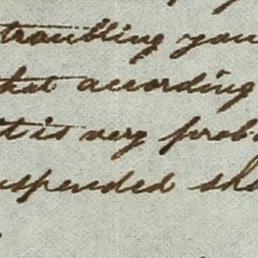 troubling you
that according
it is very prob
uspended sh